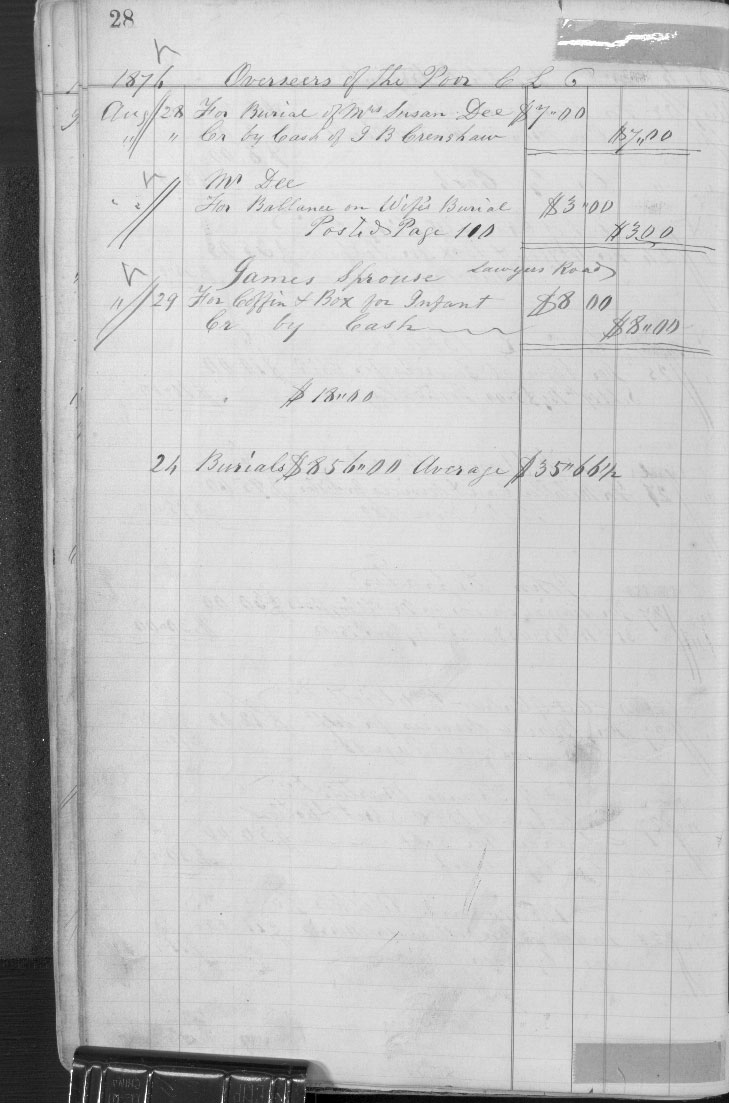 28
1874 Overseers of the Poor C L C
Aug 28 For Burial of Mrs Susan Dee $7"00
" " Cr by Cash of J B Crenshaw $7"00
Mr Dee
" " For Ballance on Wifes Burial $3"00
Posted Page 110 $3.00
James Sprouse Lawyers Road
" 29 For Coffin & Box for Infant $8 00
Cr by Cash $8"00
$18"00
24 Burials $856"00 Average $35"66½